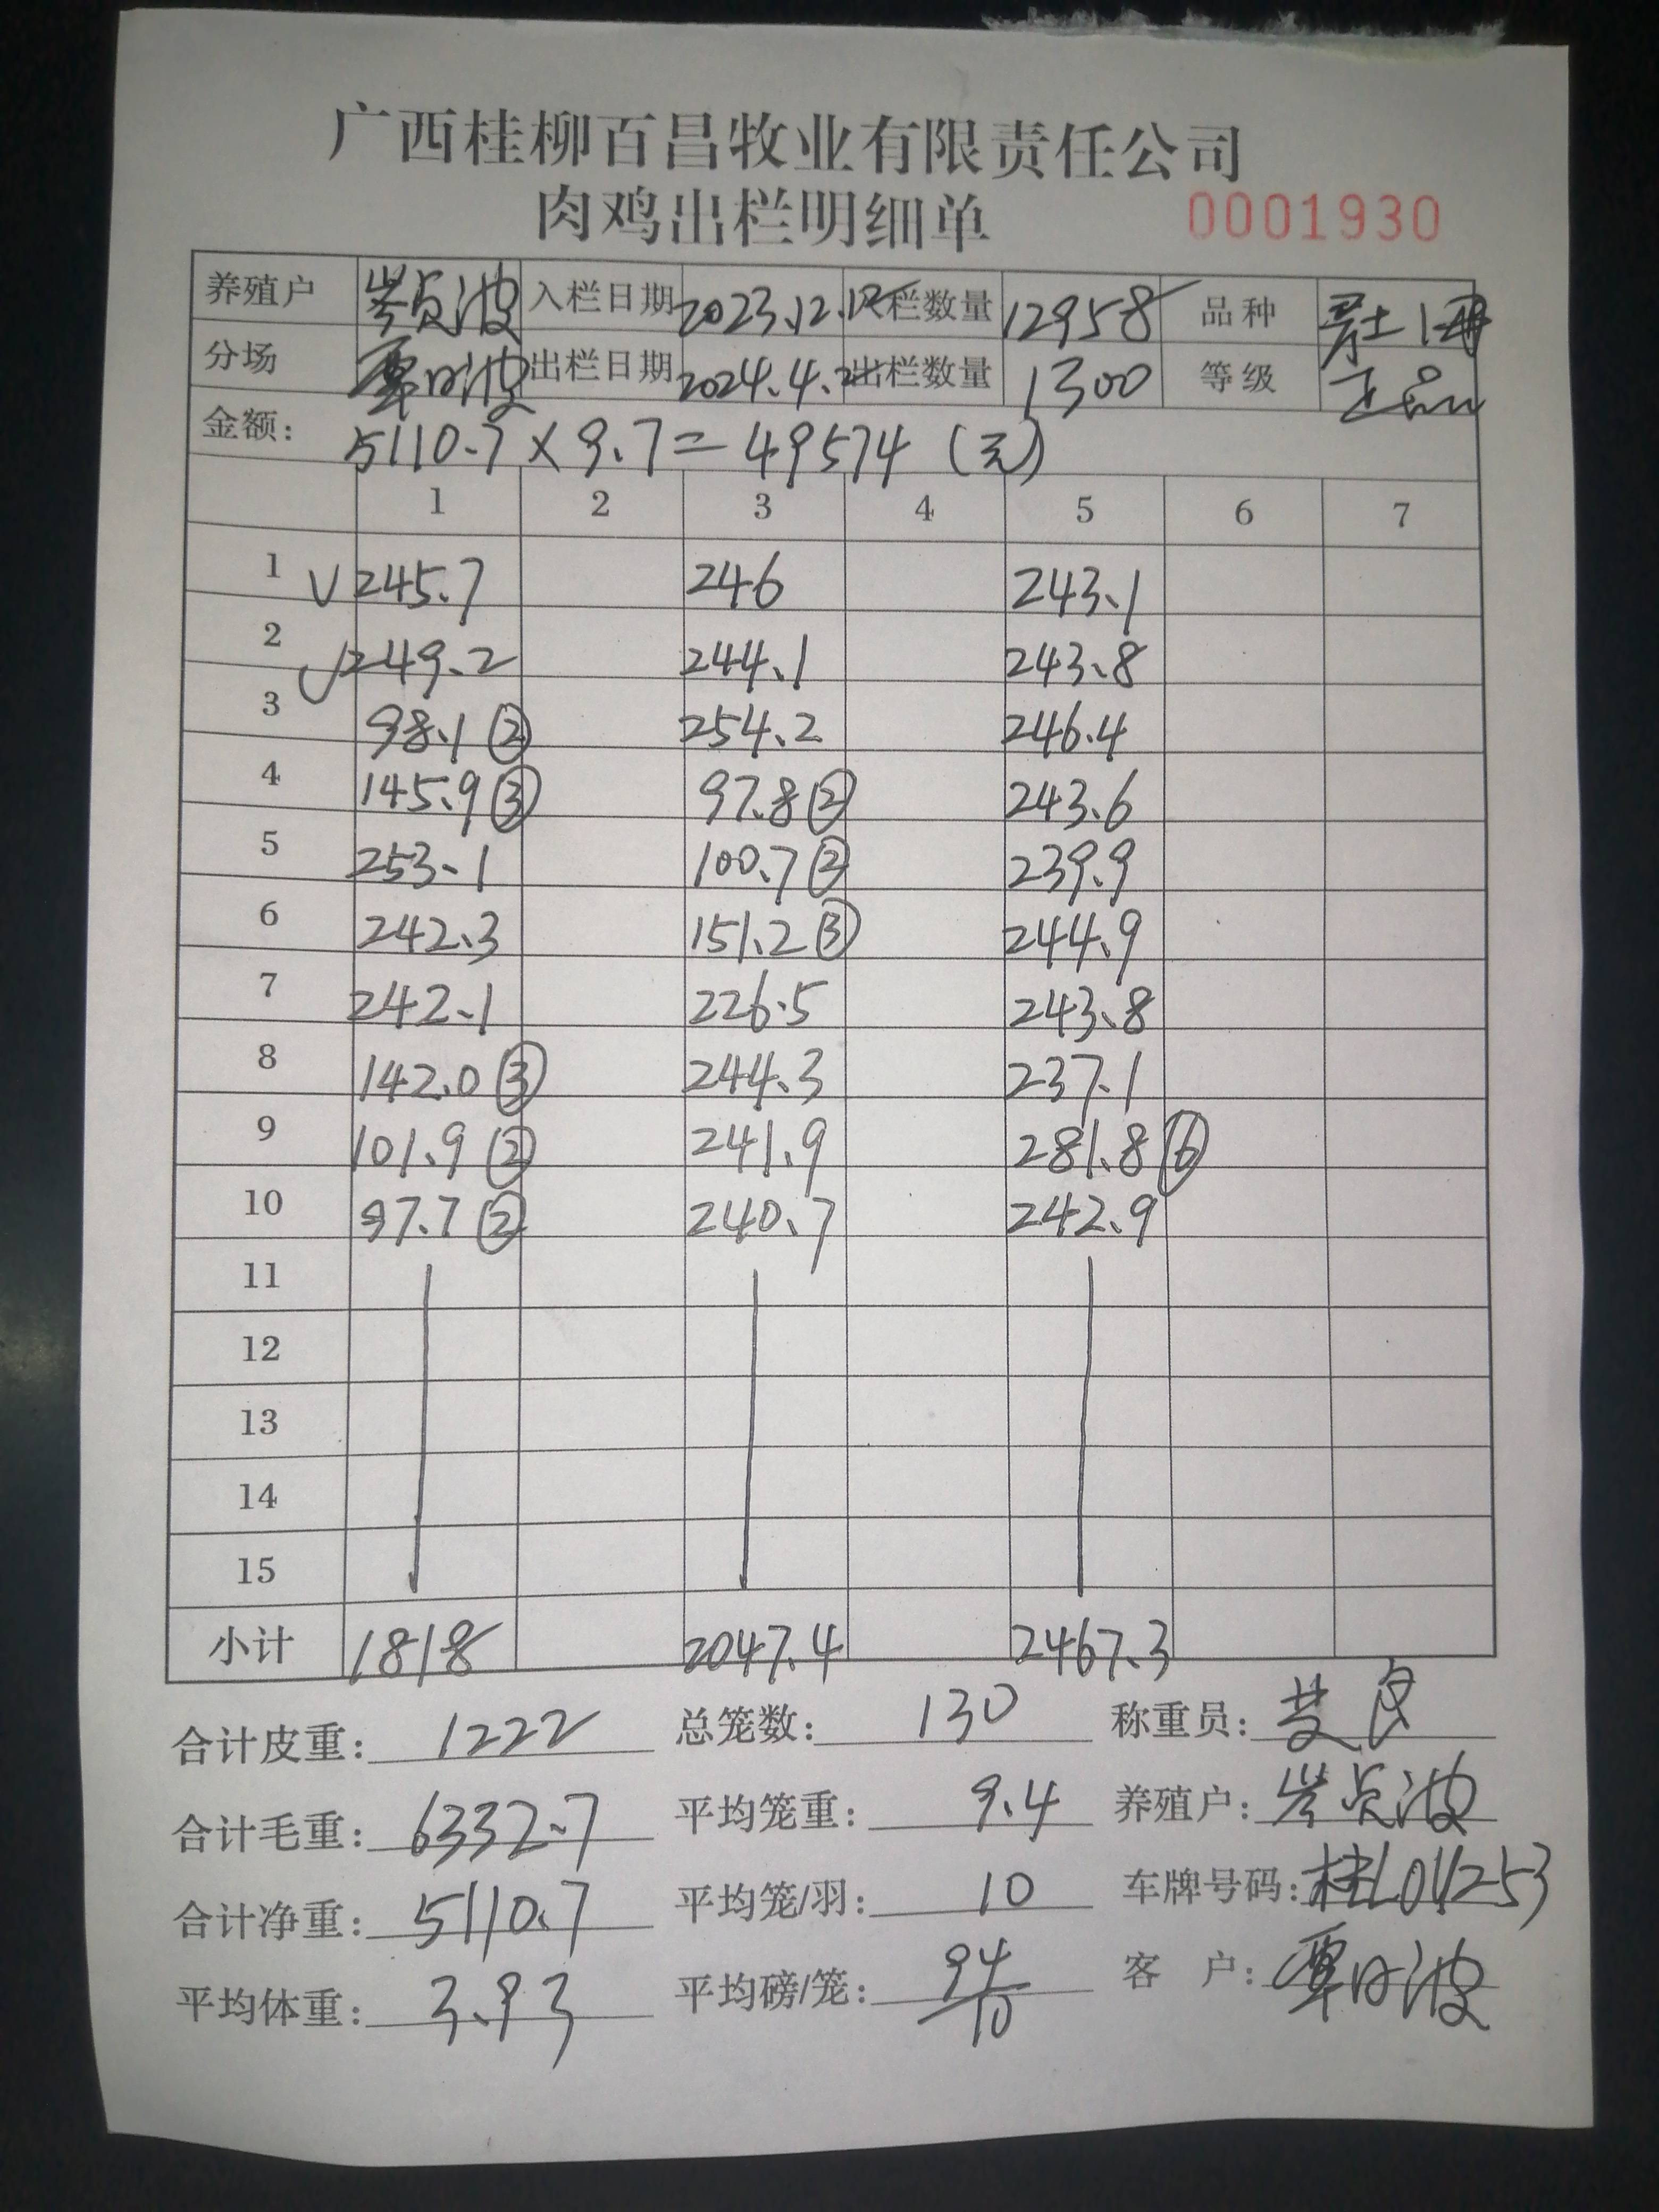 广西桂柳百昌牧业有限责任公司
肉鸡出栏明细单 0001930
养殖户 岑贞波 入栏日期 2023.12. 栏数量 12958 品种
分场 覃日波 出栏日期 2024.4. 出栏数量 1300 等级 正品
金额: 5110.7×9.7=49574(元)
1 2 3 4 5 6 7
1 √245.7 246 243.1
2 √249.2 244.1 243.8
3 98.1② 254.2 246.4
4 145.9③ 97.8② 243.6
5 253.1 100.7② 239.9
6 242.3 151.2③ 244.9
7 242.1 226.5 243.8
8 142.0③ 244.3 237.1
9 101.9② 241.9 281.8⑥
10 97.7② 240.7 242.9
11
12
13
14
15
小计 1818 2047.4 2467.3
合计皮重: 1222 总笼数: 130 称重员:
合计毛重: 6332.7 平均笼重: 9.4 养殖户: 岑贞波
合计净重: 5110.7 平均笼/羽: 10 车牌号码: 桂L01253
平均体重: 3.93 平均磅/笼: 94/10 客 户: 覃日波